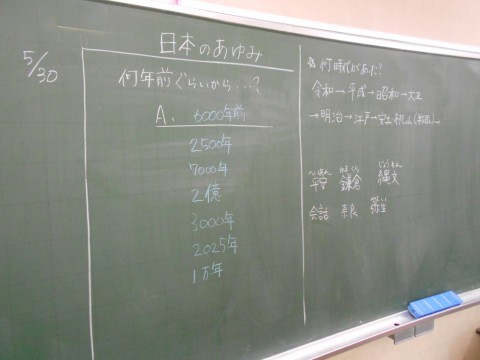 5/30
日本のあゆみ
何年前ぐらいから…?
A. 6000年前
2500年
7000年
2億
3000年
2025年
1万年
何時代があった?
令和→平成→昭和→大正
→明治→江戸→安土桃山
へいあん かまくら じょうもん
平安 鎌倉 縄文
やよい
会話 奈良 弥生